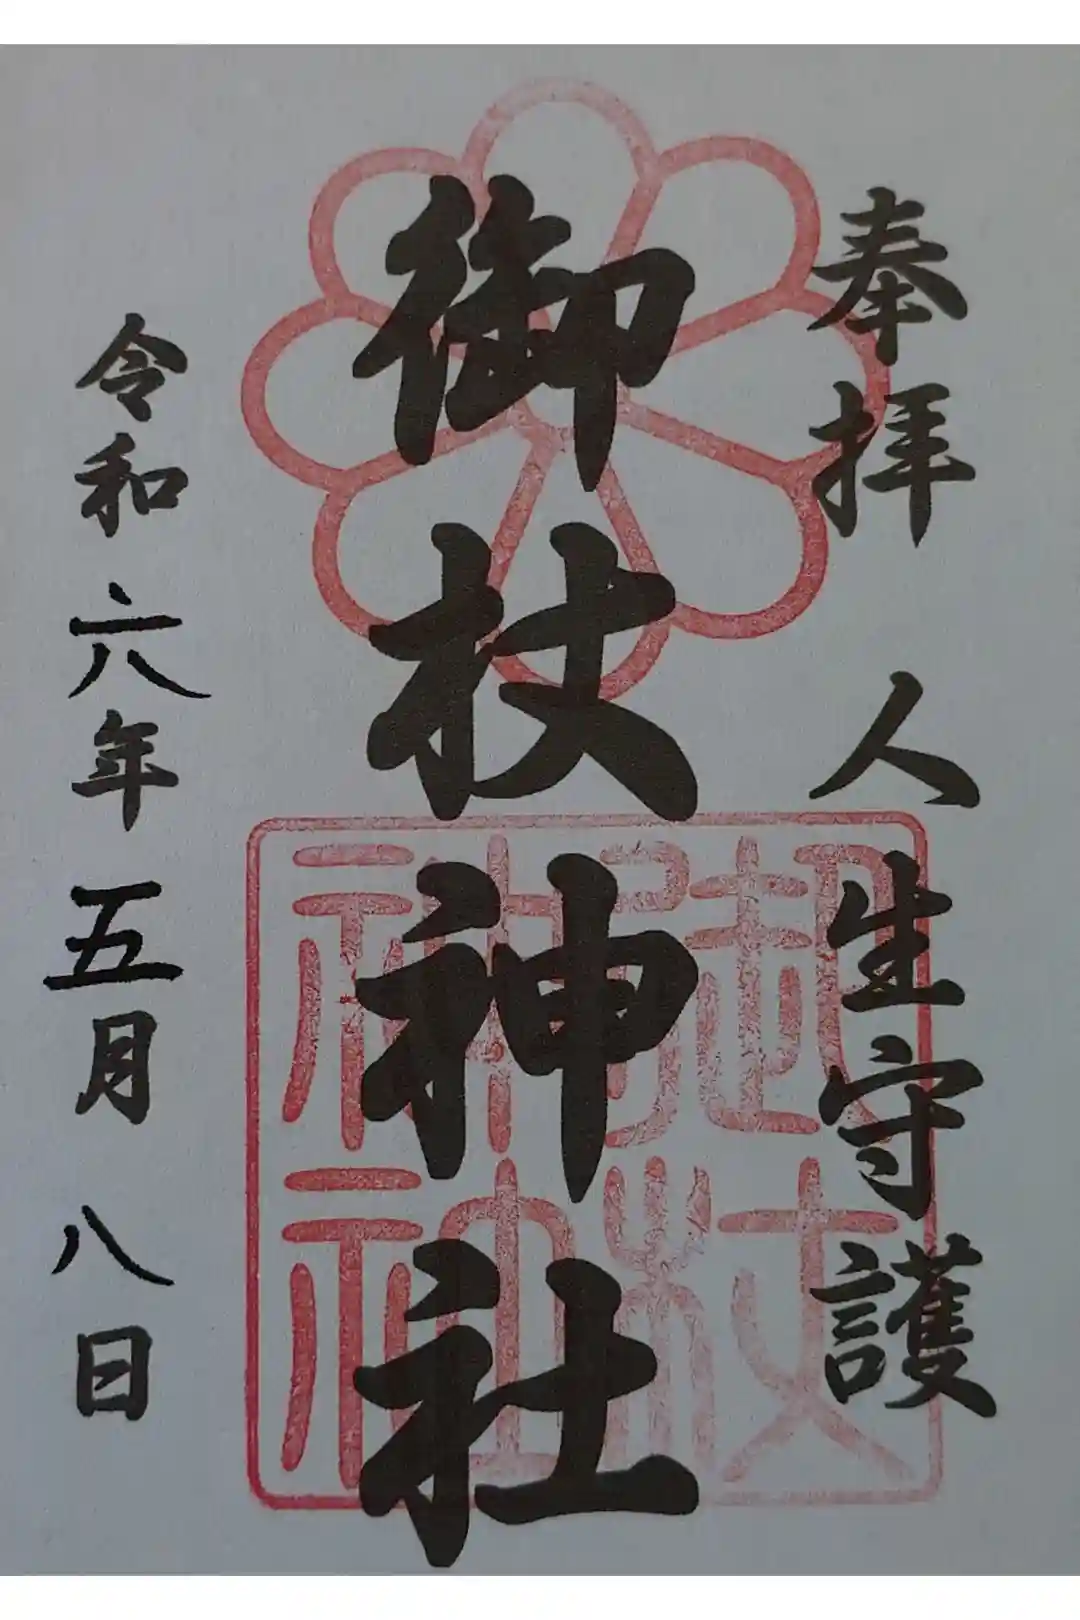 奉拝 人生守護
御杖神社
御杖神社
令和六年五月八日